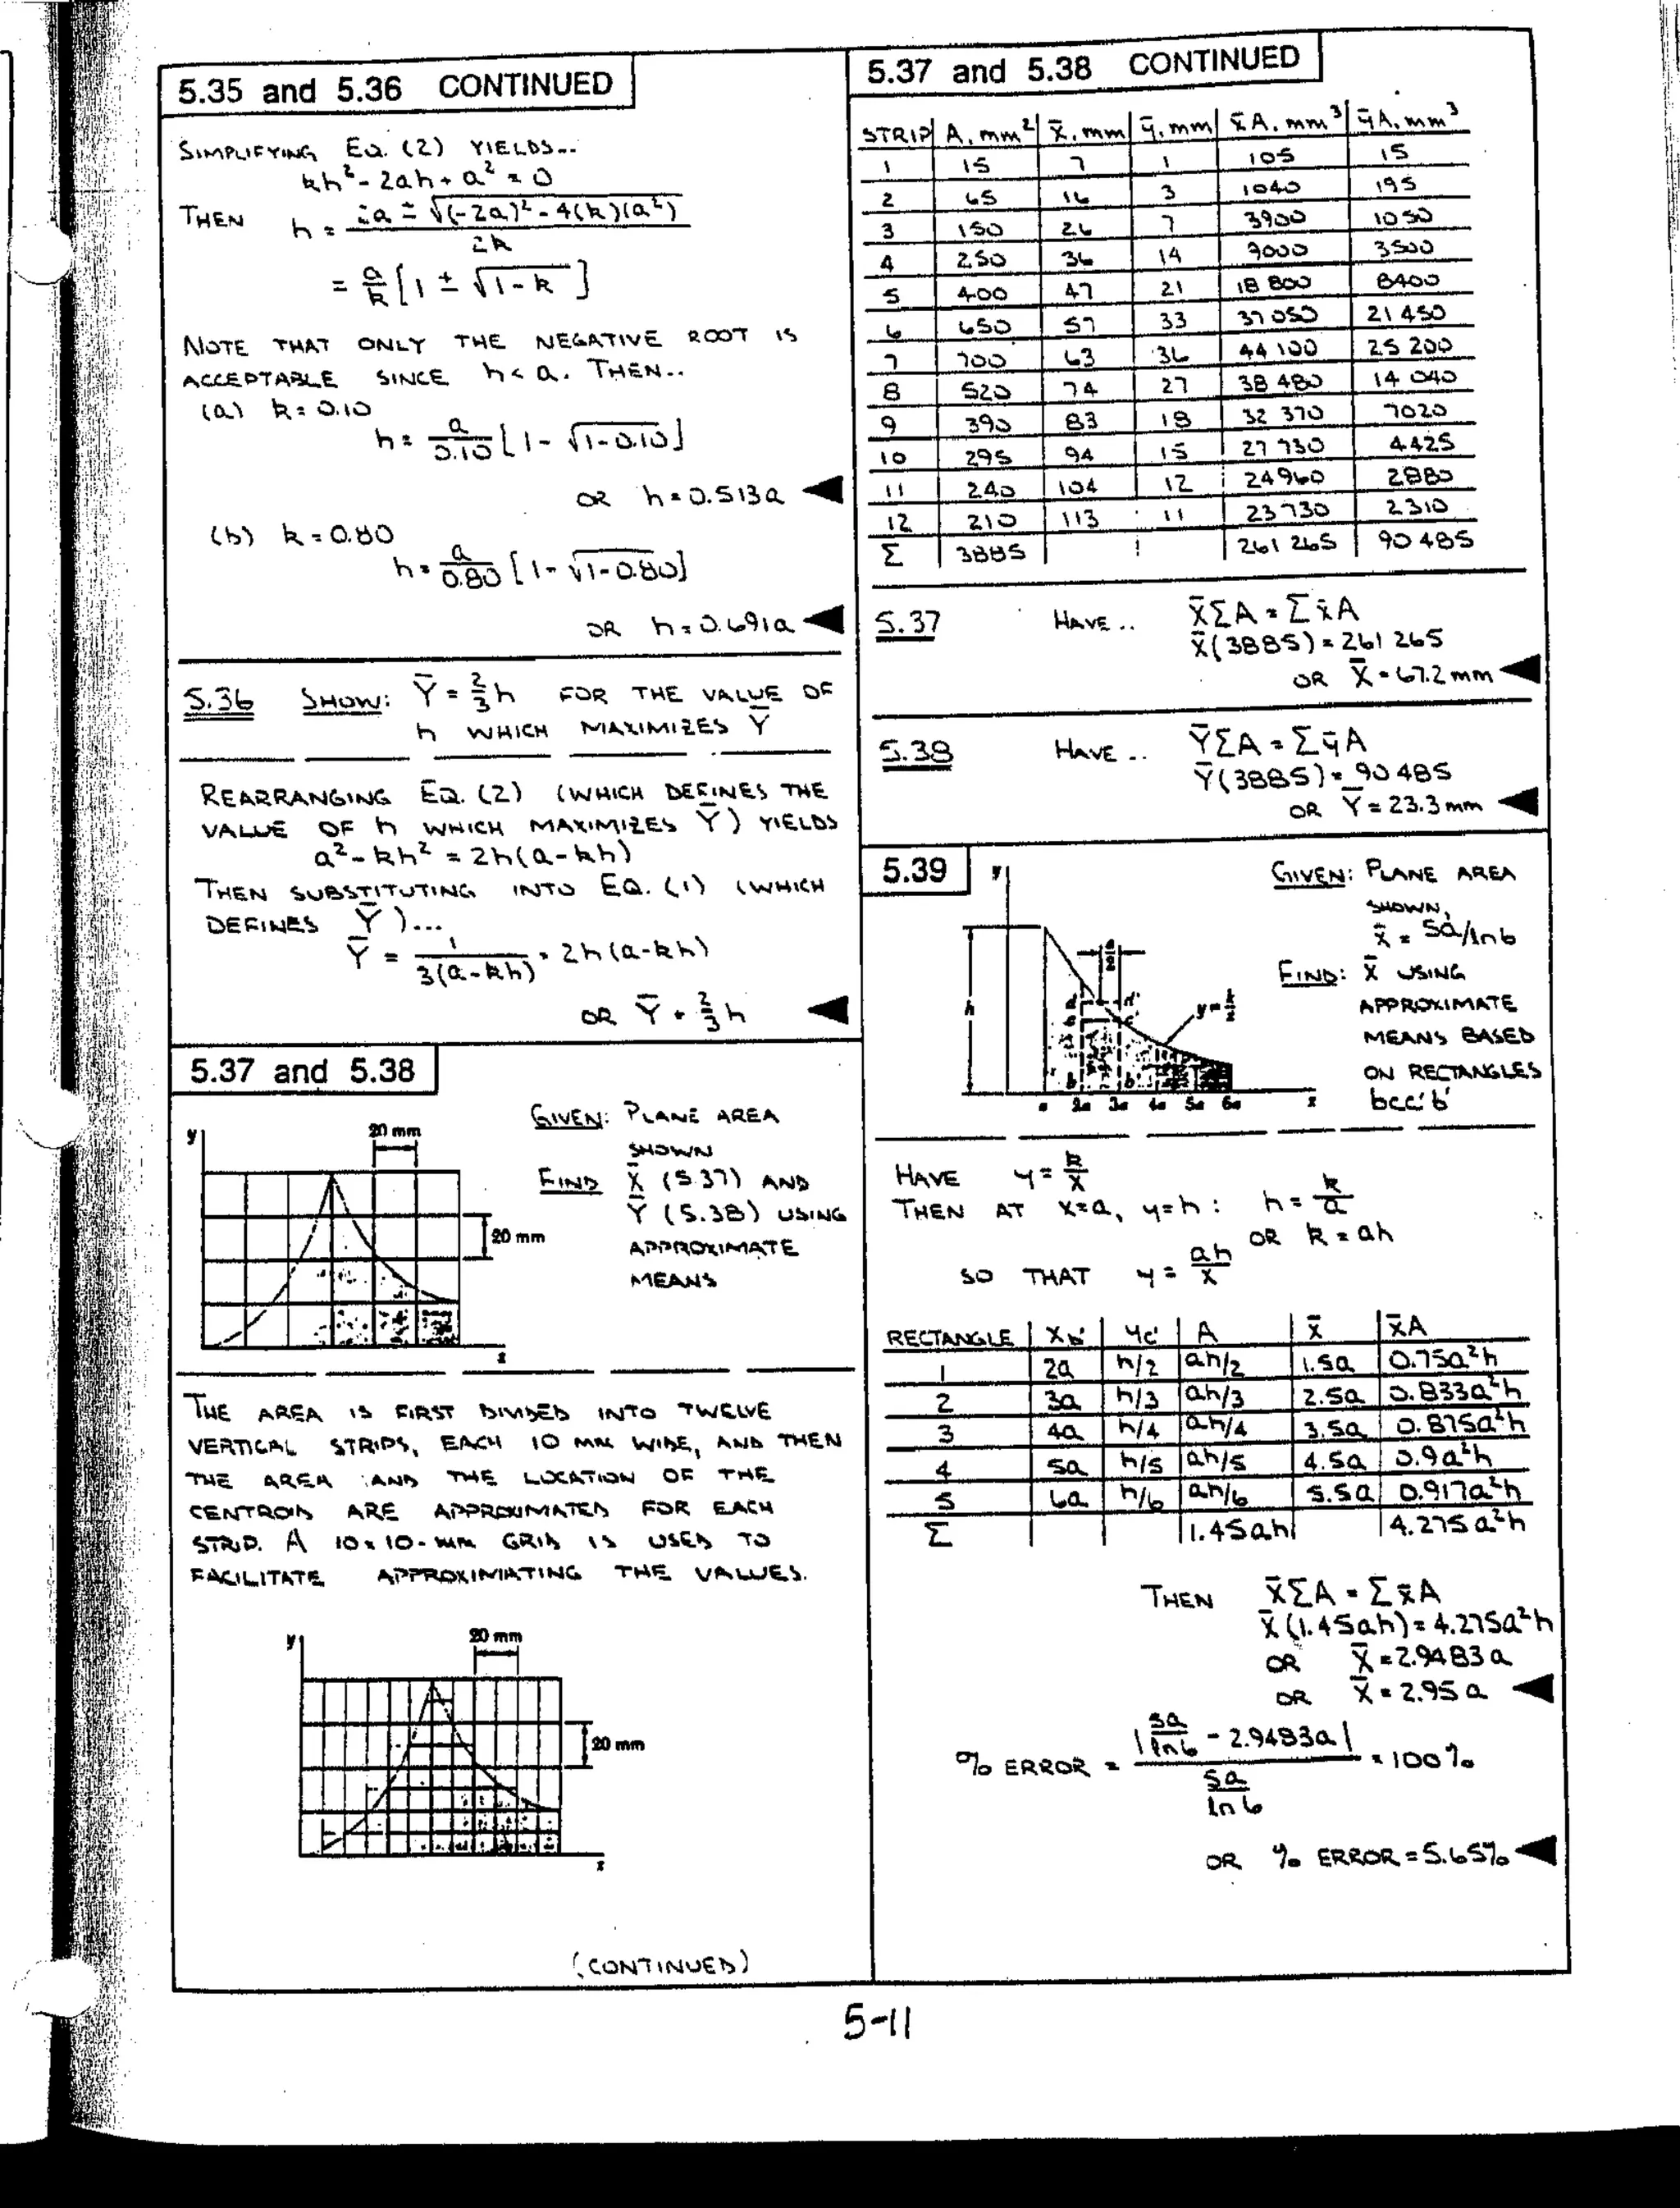 5.35 and 5.36 CONTINUED
SIMPLIFYING EQ. (2) YIELDS...
kh² - 2ah + a² = 0
THEN h = 2a ± √((-2a)² - 4(k)(a²)) / 2k
= a/k [1 ± √(1-k)]
NOTE THAT ONLY THE NEGATIVE ROOT IS
ACCEPTABLE SINCE h < a. THEN..
(a) k = 0.10
h = a/0.10 [1 - √(1-0.10)]
OR h = 0.513a
(b) k = 0.80
h = a/0.80 [1 - √(1-0.80)]
OR h = 0.691a
5.36 SHOW: Ȳ = 2/3 h FOR THE VALUE OF
h WHICH MAXIMIZES Ȳ
REARRANGING EQ. (2) (WHICH DEFINES THE
VALUE OF h WHICH MAXIMIZES Ȳ) YIELDS
a² - kh² = 2h(a-kh)
THEN SUBSTITUTING INTO EQ. (1) (WHICH
DEFINES Ȳ)...
Ȳ = 1/3(a-kh) × 2h(a-kh)
OR Ȳ = 2/3 h
5.37 and 5.38
GIVEN: PLANE AREA
SHOWN
FIND X̄ (5.37) AND
Ȳ (5.38) USING
APPROXIMATE
MEANS
y
20 mm
20 mm
x
THE AREA IS FIRST DIVIDED INTO TWELVE
VERTICAL STRIPS, EACH 10 MM WIDE, AND THEN
THE AREA AND THE LOCATION OF THE
CENTROID ARE APPROXIMATED FOR EACH
STRIP. A 10 × 10-mm GRID IS USED TO
FACILITATE APPROXIMATING THE VALUES.
y
20 mm
20 mm
x
(CONTINUED)
5.37 and 5.38 CONTINUED
STRIP A, mm² x̄, mm ȳ, mm x̄A, mm³ ȳA, mm³
1 15 7 1 105 15
2 65 16 3 1040 195
3 150 26 7 3900 1050
4 250 36 14 9000 3500
5 400 47 21 18 800 8400
6 650 57 33 37 050 21 450
7 700 63 36 44 100 25 200
8 520 74 27 38 480 14 040
9 390 83 18 32 370 7020
10 295 94 15 27 730 4425
11 240 104 12 24960 2880
12 210 113 11 23 730 2310
Σ 3885 261 265 90 485
5.37 HAVE.. X̄ΣA = Σx̄A
X̄(3885) = 261 265
OR X̄ = 67.2 mm
5.38 HAVE.. ȲΣA = ΣȳA
Ȳ(3885) = 90 485
OR Ȳ = 23.3 mm
5.39
GIVEN: PLANE AREA
SHOWN,
x̄ = 5a/ln6
FIND: X̄ USING
APPROXIMATE
MEANS BASED
ON RECTANGLES
bcc'b'
y
h
y = k/x
a 2a 3a 4a 5a 6a x
HAVE y = k/x
THEN AT x=a, y=h: h = k/a
OR k = ah
SO THAT y = ah/x
RECTANGLE xb' yc' A x̄ x̄A
1 2a h/2 ah/2 1.5a 0.75a²h
2 3a h/3 ah/3 2.5a 0.833a²h
3 4a h/4 ah/4 3.5a 0.875a²h
4 5a h/5 ah/5 4.5a 0.9a²h
5 6a h/6 ah/6 5.5a 0.917a²h
Σ 1.45ah 4.275a²h
THEN X̄ΣA = Σx̄A
X̄(1.45ah) = 4.275a²h
OR X̄ = 2.9483a
OR X̄ = 2.95a
% ERROR = |5a/ln6 - 2.9483a| / 5a/ln6 × 100%
OR % ERROR = 5.65%
5-11